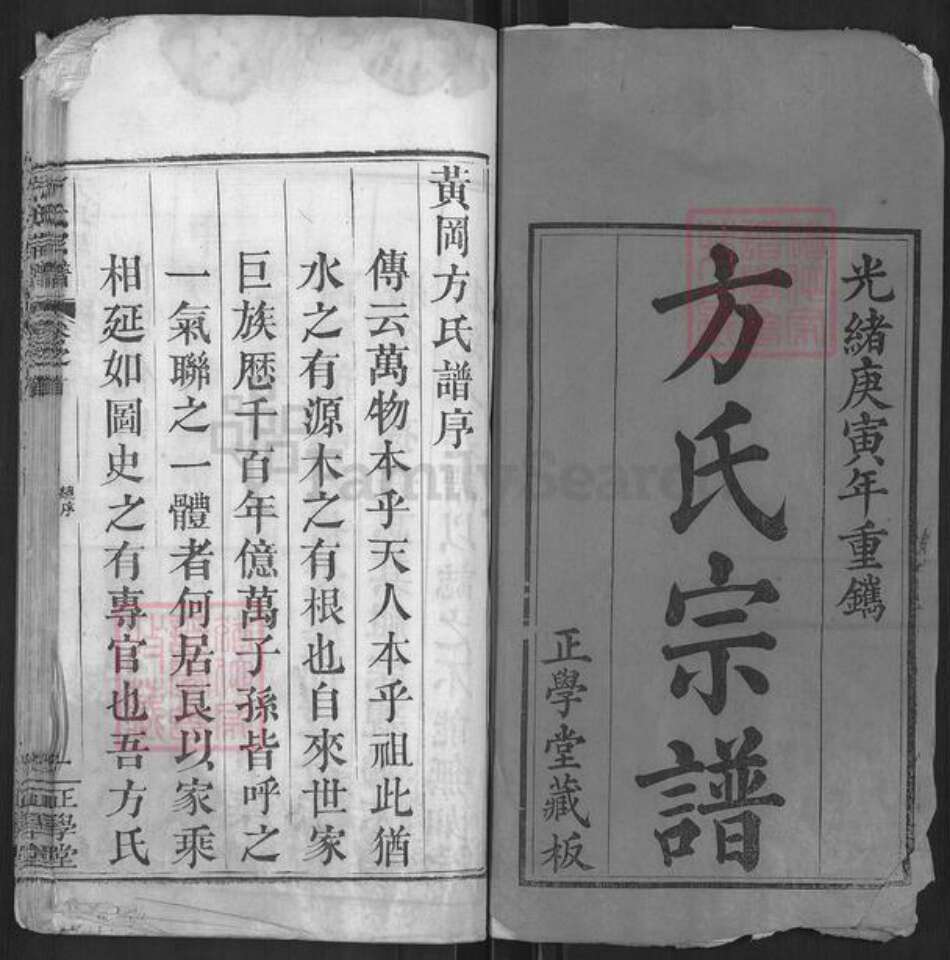 光緒庚寅年重鐫
方氏宗譜
正學堂藏板
黃岡方氏譜序
傳云萬物本乎天人本乎祖此猶
水之有源木之有根也自來世家
巨族歷千百年億萬子孫皆呼之
一氣聯之一體者何居良以家乘
相延如圖史之有專官也吾方氏
方氏宗譜
卷之首
總序
一
正學堂
FamilySearch